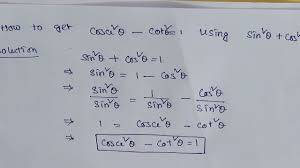 How to get Cosec²θ - Cot²θ=1 using Sin²θ + Cos²
Solution
Sin²θ + Cos²θ = 1
⇒ Sin²θ = 1 - Cos²θ
⇒ Sin²θ/Sin²θ = 1/Sin²θ - Cos²θ/Sin²θ
⇒ 1 = Cosec²θ - Cot²θ
⇒ Cosec²θ - Cot²θ = 1